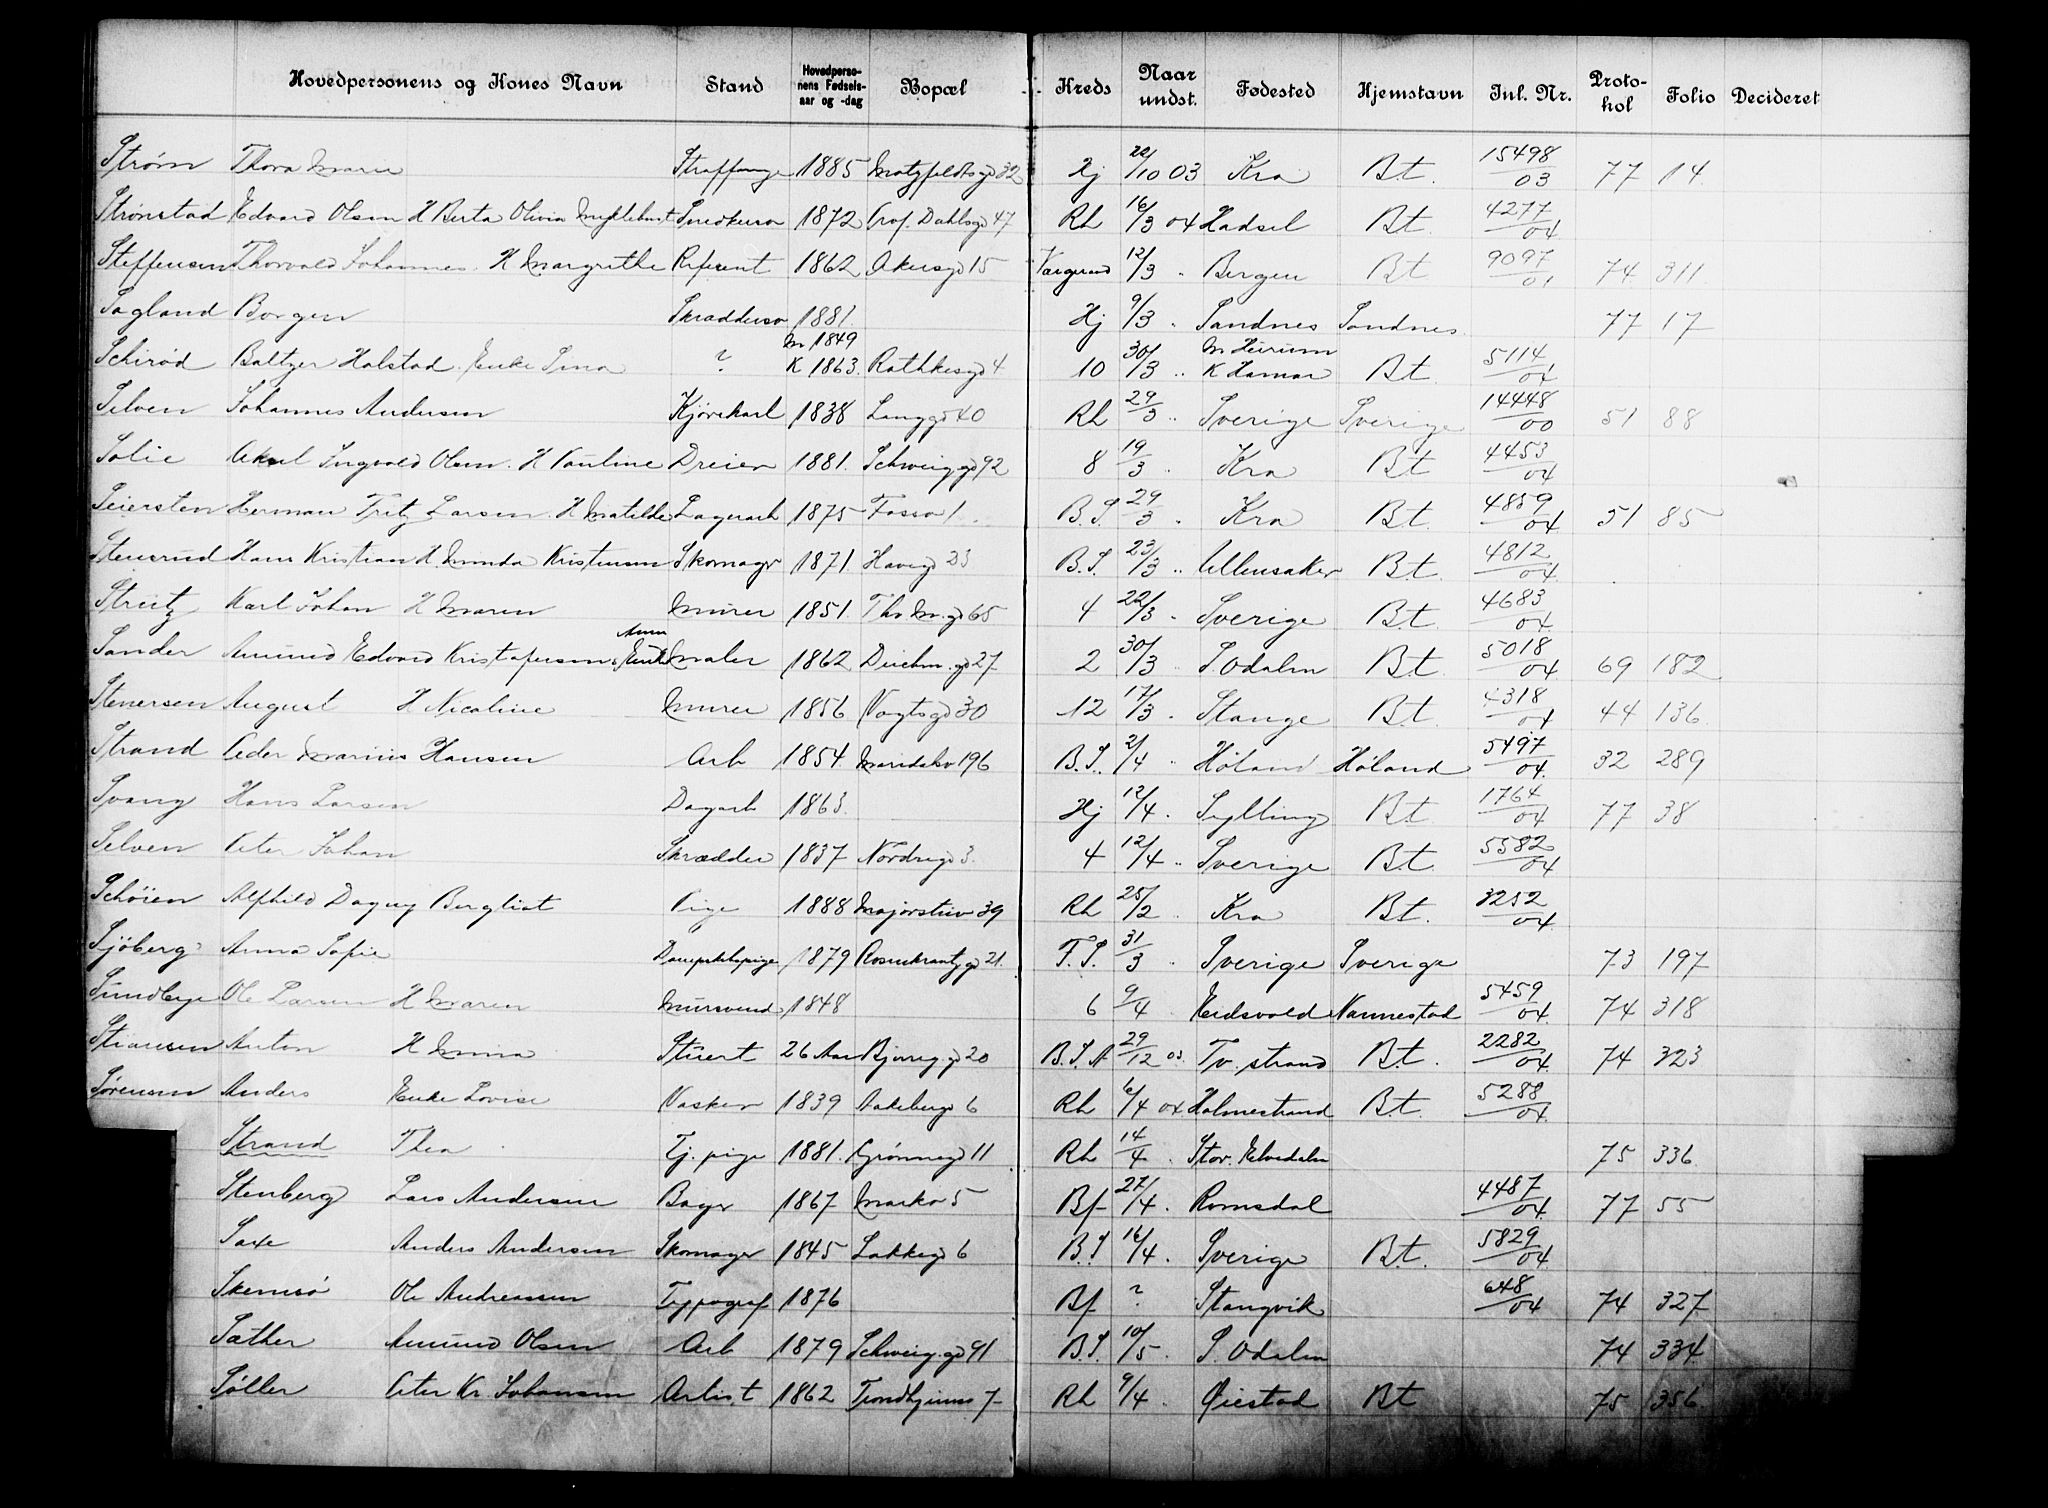 Hovedpersonens og Kones Navn Stand Hovedpersonens Fødselsaar og -dag Bopæl Kreds Naar undst. Fødested Hjemstavn Inl. Nr. Protokol Folio Decideret
Strøm Thora Marie Straffange 1885 32 Hj 22/10 03 Kra Bt. 15498/03 77 14
Strønstad Edvard Olsen H Berta Olivia Myklebust Snedkersv 1872 Prof. Dahlsgd 47 Rh 16/3 04 Hadsel Bt. 4277/04
Steffensen Thorvald Johannes. H Margrethe Repsent 1862 Akersgd 15 12/3 " Bergen Bt 9097/01 74 311
Sagland Borgen Skræddersv 1881. Hj 9/3 " Sandnes Sandnes 77 17
Schirød Baltzer Halstad. Enke Lina ? M 1849 K 1863. Rathkesgd 4 10 30/3 " K Hamar Bt. 5114/04
Selven Johannes Andersen Kjørekarl 1838 Langgd 40 Rh 29/3 " Sverige Sverige 14448/00 51 88
Solie Ingvald Olsen. H Pauline Dreier 1881. Schweiggd 92 8 19/3 " Kra Bt. 4453/04
Seiersten Herman Fritz Larsen. H Matilde Lagerarb 1875 Fossv 1. B.S. 29/3 " Kra Bt. 4859/04 51 85
Stensrud Hans Kristian H. Minda Kristensen Skomagr 1871. 23 B.S. 23/3 " Ullensaker Bt. 4812/04
Streitz Karl Johan H Maren Murer 1851. Th. M. gd 65 4 22/3 " Sverige Bt. 4683/04
Sander Amund Edvard Kristofersen Enke Anna Maler 1862 Deichm. gd 27 2 30/3 " S. Odalen Bt. 5018/04 69 182
Stenersen August H Nicoline Murer 1856 Vogtsgd 30 12 17/3 " Stange Bt. 4318/04 44 136
Strand Peder Marius Hansen Arb 1854. Maridalsv 196 B.S. 2/4 " Høland Høland 5497/04. 32 289
Svang Hans Larsen Dagarb 1863. Hj 12/4. Sylling Bt. 1764/04 77 38
Selven Peter Johan Skrædder 1837 Nordregd 3. 4 12/4 " Sverige Bt. 5582/04
Schöien Alfhild Dagny Bergliot Pige 1888 Majorstuv 39 Rh 25/2 " Kra Bt. 3252/04.
Sjöberg Anna Sofie 1879 Rosenkrantzgd 21. F.S. 31/3 " Sverige Sverige 73 197
Sundbye Ole Larsen H Maren Mursvend 1848 6 9/4 Eidsvold Nannestad 5459/04. 74 318
Anton H Mina Stuert 26 Aar 20 B.S.A 29/12 03. Tv. strand Bt. 2282/04. 74 323
Sørensen Anders Enke Lovise Vasker 1839 Aakebergd 6 Rh 6/4 04 Holmestrand Bt. 5288/04.
Strand Thea Tj. pige 1881. Grønnegd 11 Rh 14/4 " Stor. Elvedalen 75 336
Stenberg Lars Andersen Bagr 1867 Markv 5 Bf 27/4. Romsdal 4487/04. 77 55
Saxe Anders Andersen Skomager 1845 Lakkegd 6 B.S 16/4. Sverige Bt. 5829/04.
Skemsö Ole Andreassen Typograf 1876 Bf ? Stangvik 648/04 74 327
Sæther Amund Olsen Arb 1879 Schweig. gd 91 B.S. 10/5 " S. Odalen 74 334
Søller Peter Kr. Johansen Artist 1862 Trondhjemsv 7 Rh 9/4. Øiestad Bt 75 356